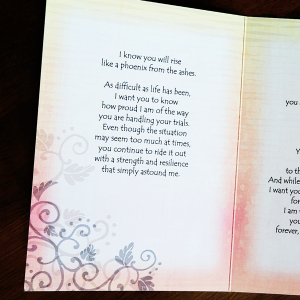 I know you will rise
like a phoenix from the ashes.
As difficult as life has been,
I want you to know
how proud I am of the way
you are handling your trials.
Even though the situation
may seem too much at times,
you continue to ride it out
with a strength and resilience
that simply astound me.
you
Y
to th
And while
I want you
for
I am
you
forever,